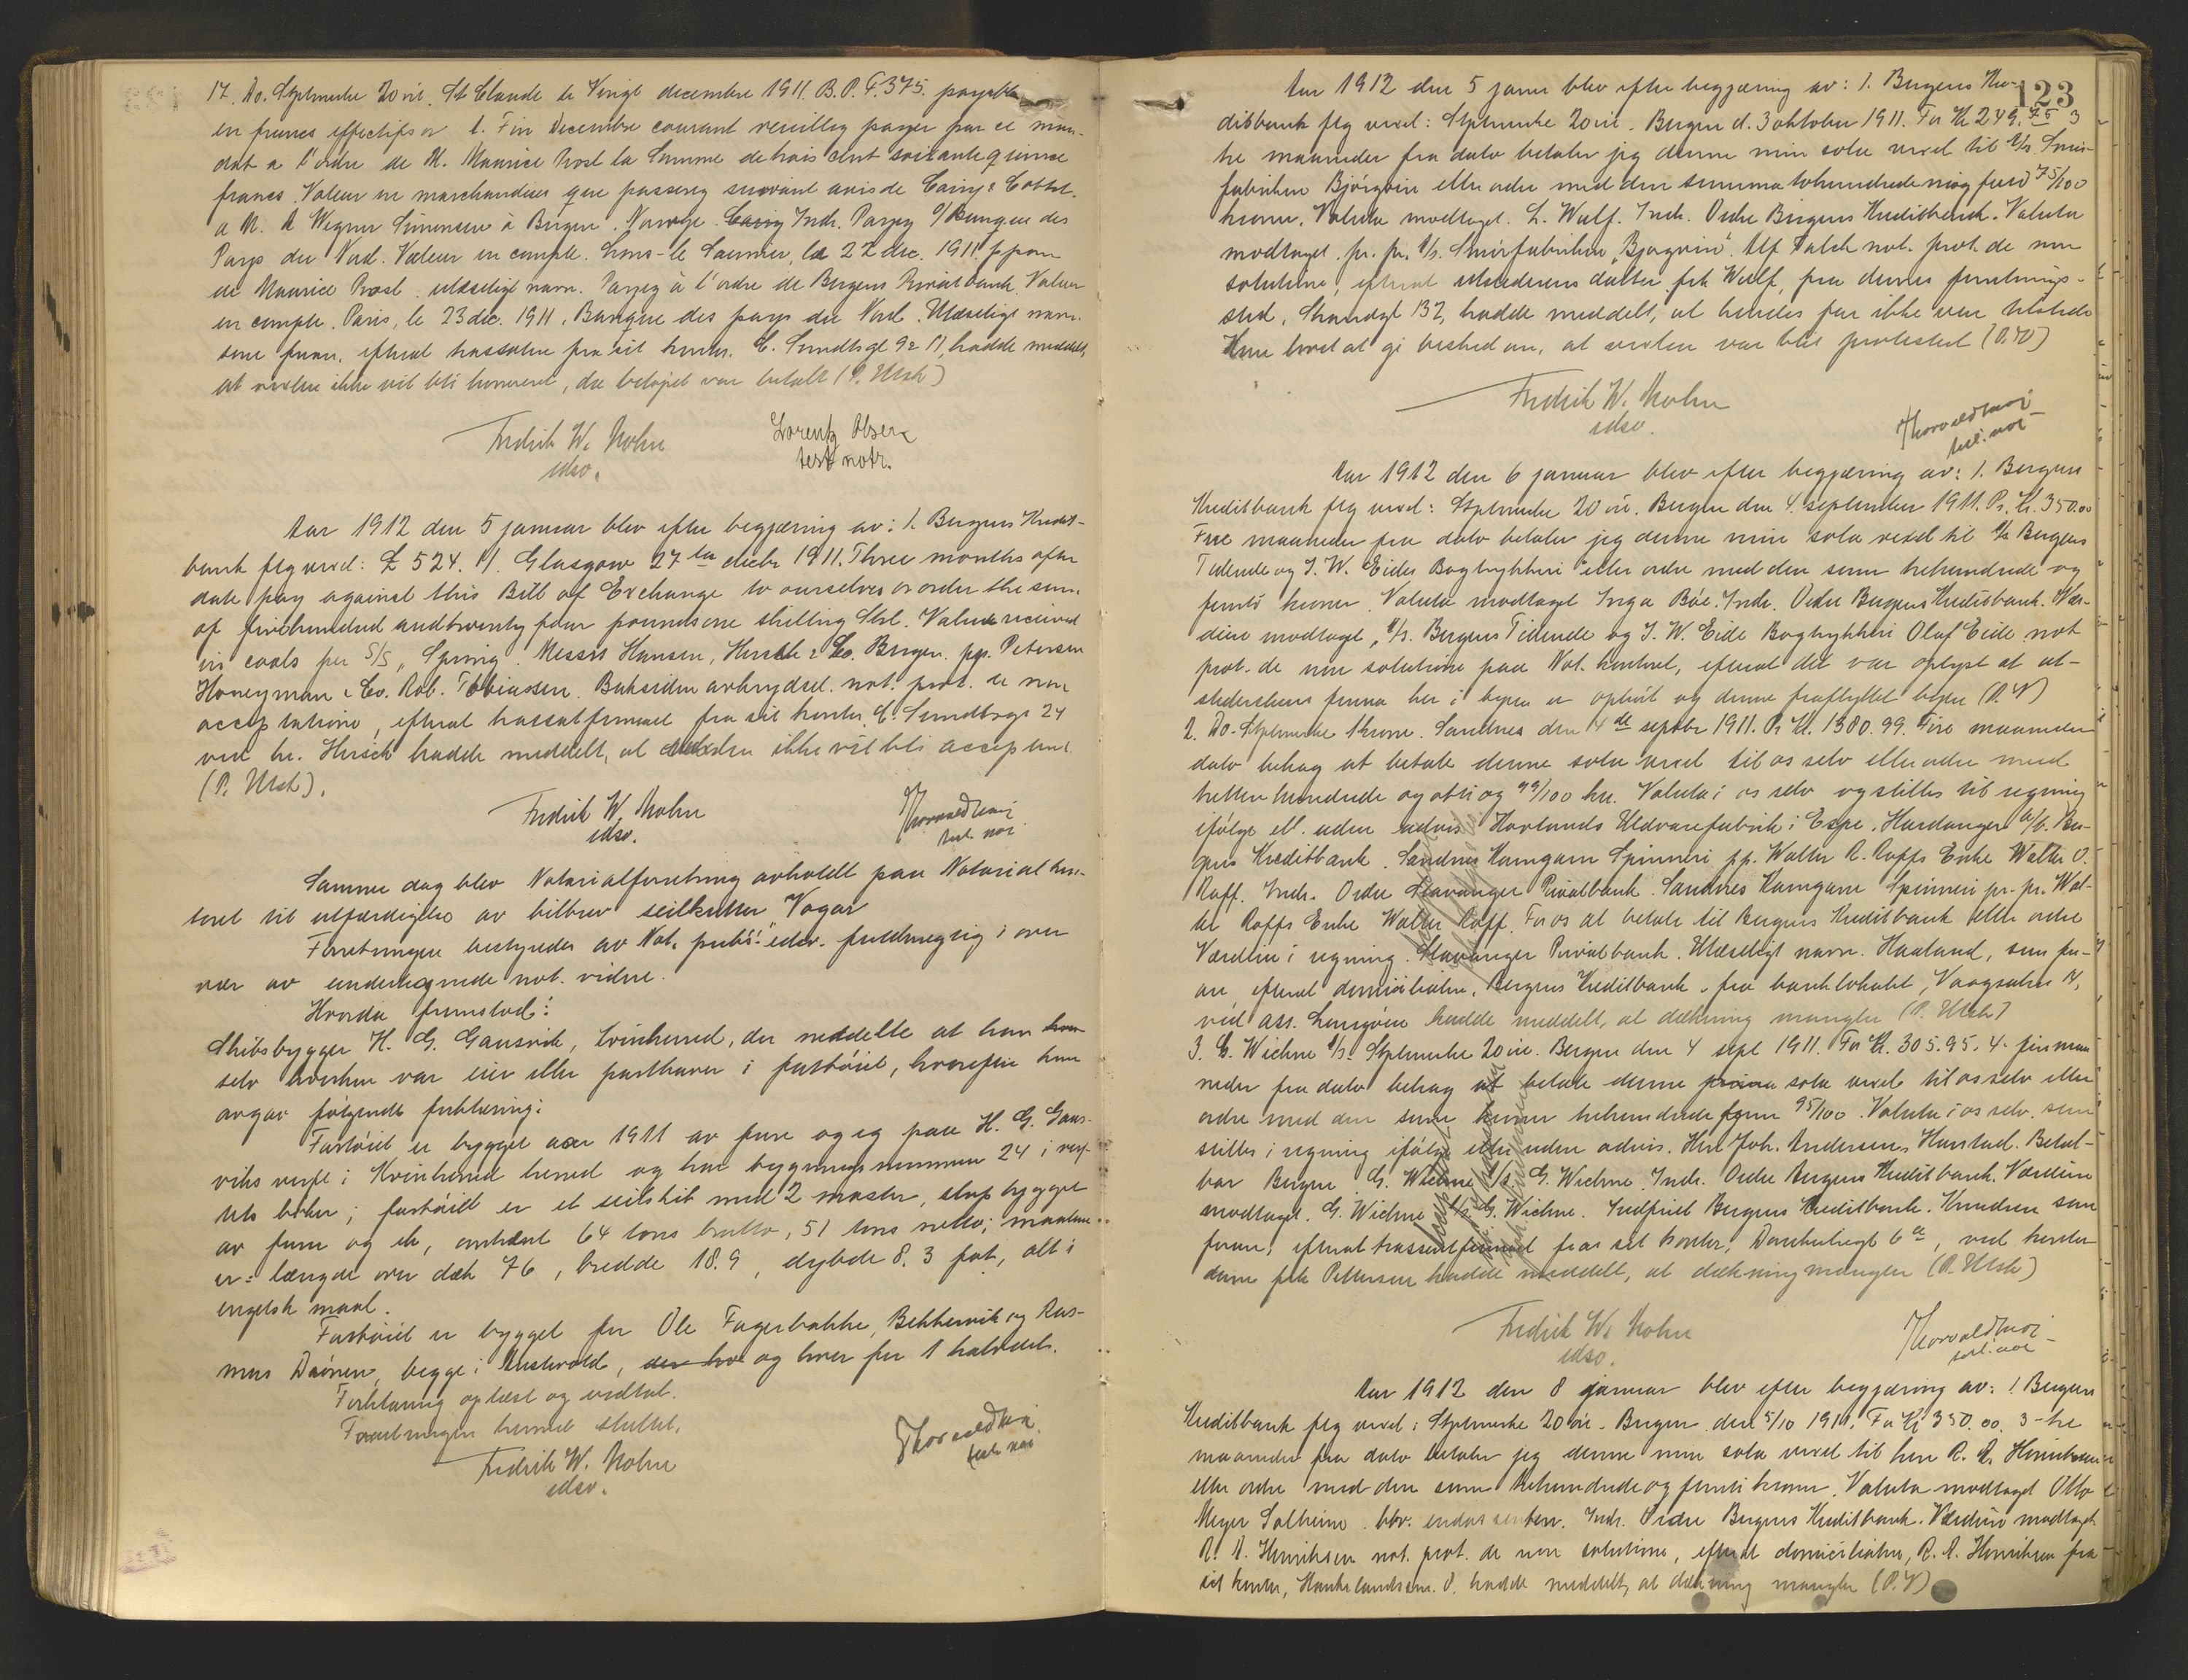 17. Do. Stplmerke 20 øre. St Claude le Vingt decembre 1911. B.P. F. 375. payable
en francs effectifs or 1. Fin Decembre courant veuillez payer par ce man-
dat a l'ordre de M. Maurice Prost la Somme de trois cent soixante quinze
francs. Valeur en marchandises que passerez suivant avis de
a M. A Wegner Sørensen à Bergen. Norvège. Indr. Payez S/Banque des
Pays du Nord. Valeur en compte. Lons-le Saunier, le 22 dec. 1911. ppon
de Maurice Prost. ulæseligt navn. Payez à l'ordre de Bergens Privatbank. Valeur
en compte. Paris, le 23 dec. 1911. Banque des pays du Nord. Ulæseligt navn.
som foran, efterat trassaten fra sit kontor. C. Sundtsgt 92 II, hadde meddelt,
at vexlen ikke vil bli honoreret, da beløpet var betalt (P. Utsk)
Fredrik W. Mohn
edsv.
Lorentz Olsen
test notr.
Aar 1912 den 5 januar blev efter begjæring av: 1. Bergens Kredit-
bank flg vexel: £ 524. 1/. Glasgow 27 decbr 1911. Three months after
date pay against this Bill of Exchange to ourselves or order the sum
of fivehundred and twenty four pounds one shilling Strl. Value received
in coals per S/S „Spring". Messrs Hansen, Hersch & Co. Bergen. pp. Petersen
Honeyman & Co. Rob. Tobiassen. Baksiden avkrydset. not. prot. de non
acceptatione, efterat trassatfirmaet fra sit kontor, C. Sundtsgt 24
ved hr. Hersch hadde meddelt, at vexlen ikke vil bli accepteret.
(P. Utsk).
Fredrik W. Mohn
edsv.
Samme dag blev Notarialforretning avholdt paa Notarialkon-
toret til utfærdigelse av bilbrev seilkutter „Vogar"
Forretningen bestyredes av Not. pub.s edsv. fuldmægtig i over
vær av undertegnede not. vidne.
Hvorda fremstod:
Skibsbygger H. G. Gausvik, Kvinherred, der meddelte at han
selv hverken var eier eller parthaver i fartøiet, hvorefter han
avgav følgende forklaring:
Fartøiet er bygget aar 1911 av furu og eg paa H. G. Gaus-
viks verft i Kvinherred herred og har bygningsnummer 24 i verf-
tets bøker; fartøiet er et seilskib med 2 master, slup bygget
av furu og ek, omtrent 64 tons brutto, 51 tons netto; maalene
er: længde over dæk 76, bredde 18.9, dybde 8.3 fot, alt i
engelsk maal.
Fartøiet er bygget for Ole Fagerbakke, Bekkervik og Ras-
mus Drønen, begge i Austevold, og hver for 1 halvdel.
Forklaring oplæst og vedtat.
Forretningen hermed sluttet.
Fredrik W. Mohn
edsv.
123
Aar 1912 den 5 januar blev efter begjæring av: 1. Bergens Kre-
ditbank flg vexel: Stplmerke 20 øre. Bergen d. 3 oktober 1911. For Kr 249.75 3
tre maaneder fra dato betaler jeg denne min sola vexel til A/s Smør-
fabriken Bjørgvin eller ordre med den summa tohundrede niog firti 75/100
kroner. Valuta modtaget. L. Wulf. Indr. Ordre Bergens Kreditbank. Valuta
modtaget. pr. pr. A/s. Smørfabriken „Bjørgvin". Alf Falck not. prot. de non
solutione, efterat utstederens datter frk Wulf, paa dennes forretnings-
sted, Strandgt 132, hadde meddelt, at hendes far ikke var tilstede
Hun lovet at gi besked om, at vexlen var blit protestert (P.W)
Fredrik W. Mohn
edsv.
Aar 1912 den 6 januar blev efter begjæring av: 1. Bergens
Kreditbank flg vexel: Stplmerke 20 øre. Bergen den 4. september 1911. Pr. Kr. 350.00
Fire maaneder fra dato betaler jeg denne min sola vexel til A/s Bergens
Tidende og J. W. Eides Bogtrykkeri eller ordre med den sum trehundrede og
femti kroner. Valuta modtaget Inga Bøe. Indr. Ordre Bergens Kreditbank. Vær-
dien modtaget, A/s. Bergens Tidende og J. W. Eide Bogtrykkeri Olaf Eide not
prot. de non solutione paa Not. kontoret, efterat det var oplyst at ut-
stederskens firma her i byen er ophørt og denne fraflyttet byen (P.V)
2. Do. Stplmerke 1 krone. Sandnes den 4de septbr 1911. Pr Kr. 1380.99. Fire maaneder
dato behag at betale denne sola vexel til os selv eller ordre med
tretten hundrede og otti og 99/100 kr. Valuta i os selv og stilles til regning
ifølge ell. uden advis. Hovlands Uldvarefabrik i Espe. Hardanger a/b. Ber-
gens Kreditbank. Sandnes Kamgarn Spinneri pp. Walter R. Raffs Enke Walter O.
Raff. Indr. Ordre Stavanger Privatbank. Sandnes Kamgarn Spinneri pr. pr. Wal-
ter Raffs Enke Walter Raff. For os at betale til Bergens Kreditbank eller ordre
Værdien i regning. Stavanger Privatbank. Ulæseligt navn. Haaland, som for-
an, efterat domiciliaten, Bergens Kreditbank, fra banklokalet, Vaagsalm. N,
ved ass. hadde meddelt, at dækning mangler (P. Utsk)
3. G. Wiehne A/s. Stplmerke 20 øre. Bergen den 4 sept 1911. For Kr. 305.95. 4. fire maa
neder fra dato behag at betale denne sola vexel til os selv eller
ordre med den sum kroner trehundrede fem 95/100. Valuta i os selv. som
stilles i regning ifølge eller uden advis. Herr Joh. Andersen, Harstad. Betal-
bar Bergen G. Wiehne A/s G. Wiehne. Indr. Ordre Bergens Kreditbank. Værdien
modtaget. G. Wiehne A/s G. Wiehne. Indfriet Bergens Kreditbank. Knudsen som
foran, efterat trassentfirmaet fra sit kontor, 6a, ved kontor
dame frk Pettersen hadde meddelt, at dækning mangler (P. Utsk)
Fredrik W. Mohn
edsv.
Aar 1912 den 8 januar blev efter begjæring av: 1. Bergens
Kreditbank flg vexel: Stplmerke 20 øre. Bergen den 5/10 1911. For Kr 350.00. 3-tre
maaneder fra dato betaler jeg denne min sola vexel til herr R. A. Henriksen
eller ordre med den sum trehundrede og femti kroner. Valuta modtaget Otto
Meyer Solheim. bbr. endossenten. Indr. Ordre Bergens Kreditbank. Værdien modtaget
R. A. Henriksen not. prot. de non solutione, efterat domiciliaten, R. A. Henriksen fra
sit kontor, hadde meddelt, at dækning mangler (P.V)